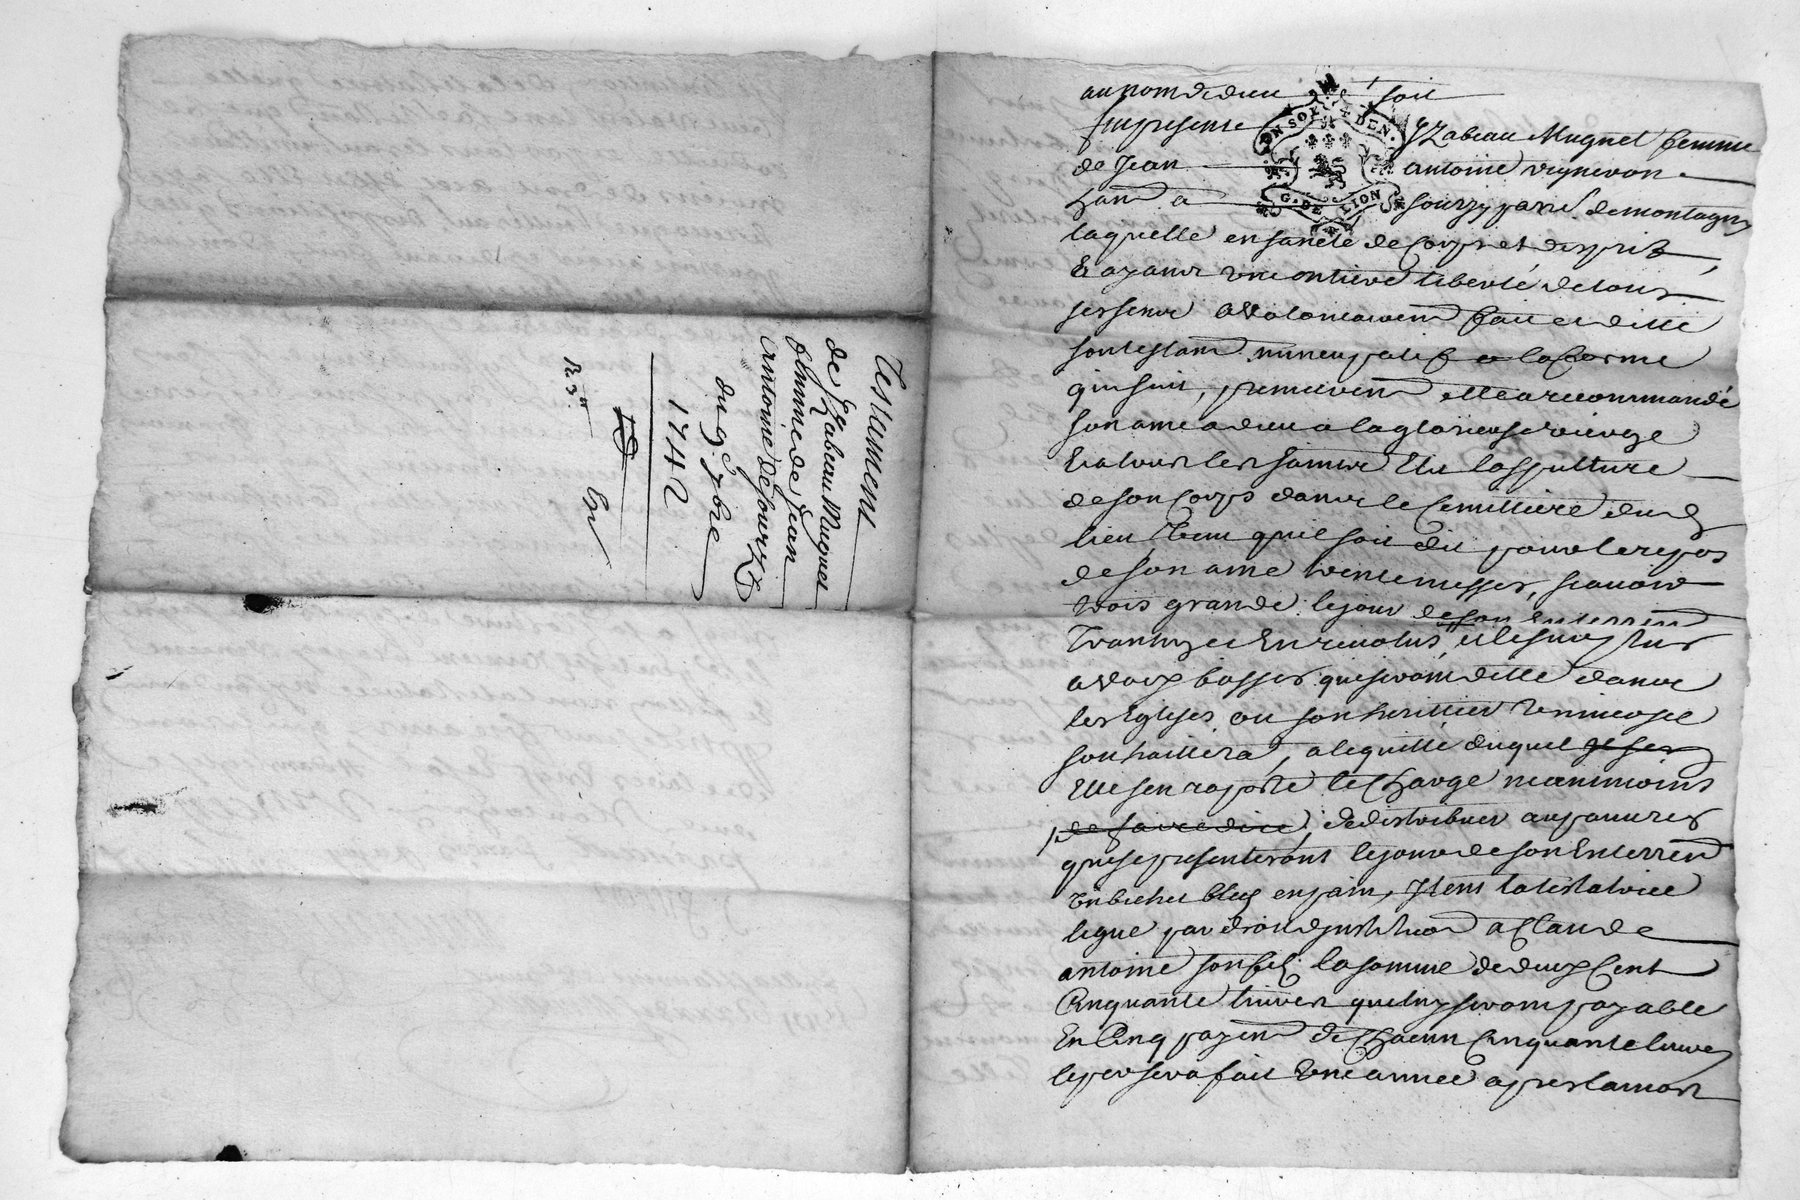 Testament
de Yzabeau Mugnet
femme de Jean
Antoine de Sourzy
du 9e 7bre
1742
au nom de dieu soit
fut presente Yzabeau Mugnet femme
de Jean antoine vigneron
hant a Sourzy parr. de montagny
laquelle en santé de Corps et desprit
Et ayant une entiere liberté de tous
ses sens a volontairem fait et dicté
son testam nuncupatif a la forme
qui suit, premierem elle a recommandé
son ame a dieu a la glorieuse vierge
Et a tous les saints Elu la sepulture
de son corps dans le Cemittiere dud
lieu, Item quil soit dit pour le repos
de son ame trente messes, scavoir
trois grande le jour de son Enterrem
et le surplus
a voix basses qui seront ditte dans
les Eglises ou son heritier universel
souhaittera, a lequitté duquel
Elle sen raporte le Charge neanmoins
de faire dire, de distribuer aux pauvres
qui se presenteront le jour de son Enterrem
un bichet bled en pain, Item la testatrice
legue par droit dinstitution a Claude
antoine son fils la somme de deux Cent
Cinquante livres que luy seront payable
En Cinq payem de Chacun Cinquante livres
le per sera fait une année apres la mort